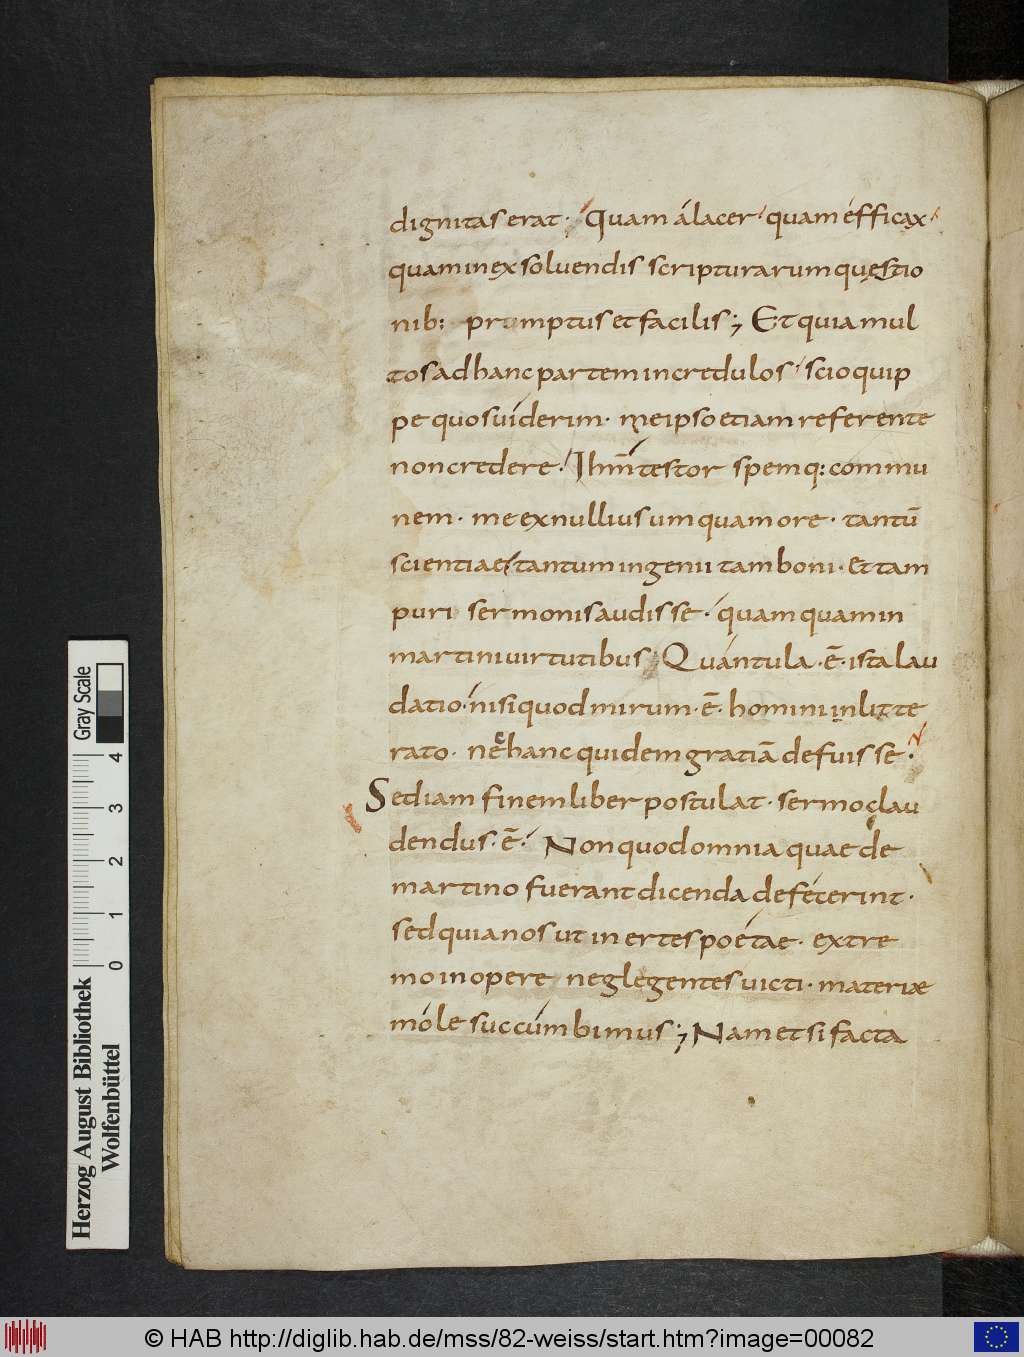 dignitas erat · Quam álacer quam éfficax
quam in exsoluendis scripturarum quęstio
nib: promptus et facilis ; Et quia mul
tos ad hanc partem incredulos scio quip
pe quos uiderim · me ipso etiam referente
non credere · Ihm̄ testor spemq: commu
nem · me ex nullius umquam ore · tantū
scientiae tantum ingenii tam boni · et tam
puri sermonis audisse · quamquam in
martini uirtutibus Quántula · ē · ista lau
datio · nisi quod mirum · ē · homini inlitte
rato · nec hanc quidem gratiā defuisse ·
Sed iam finem liber postulat · sermo clau
dendus · ē · Non quod omnia quae de
martino fuerant dicenda defécerint ·
sed quia nos ut inertes poétae · extre
mo in opere neglegentes uicti · materiæ
móle succúmbimus ; Nam etsi facta
Herzog August Bibliothek
Wolfenbüttel
Gray Scale
0 1 2 3 4
© HAB http://diglib.hab.de/mss/82-weiss/start.htm?image=00082